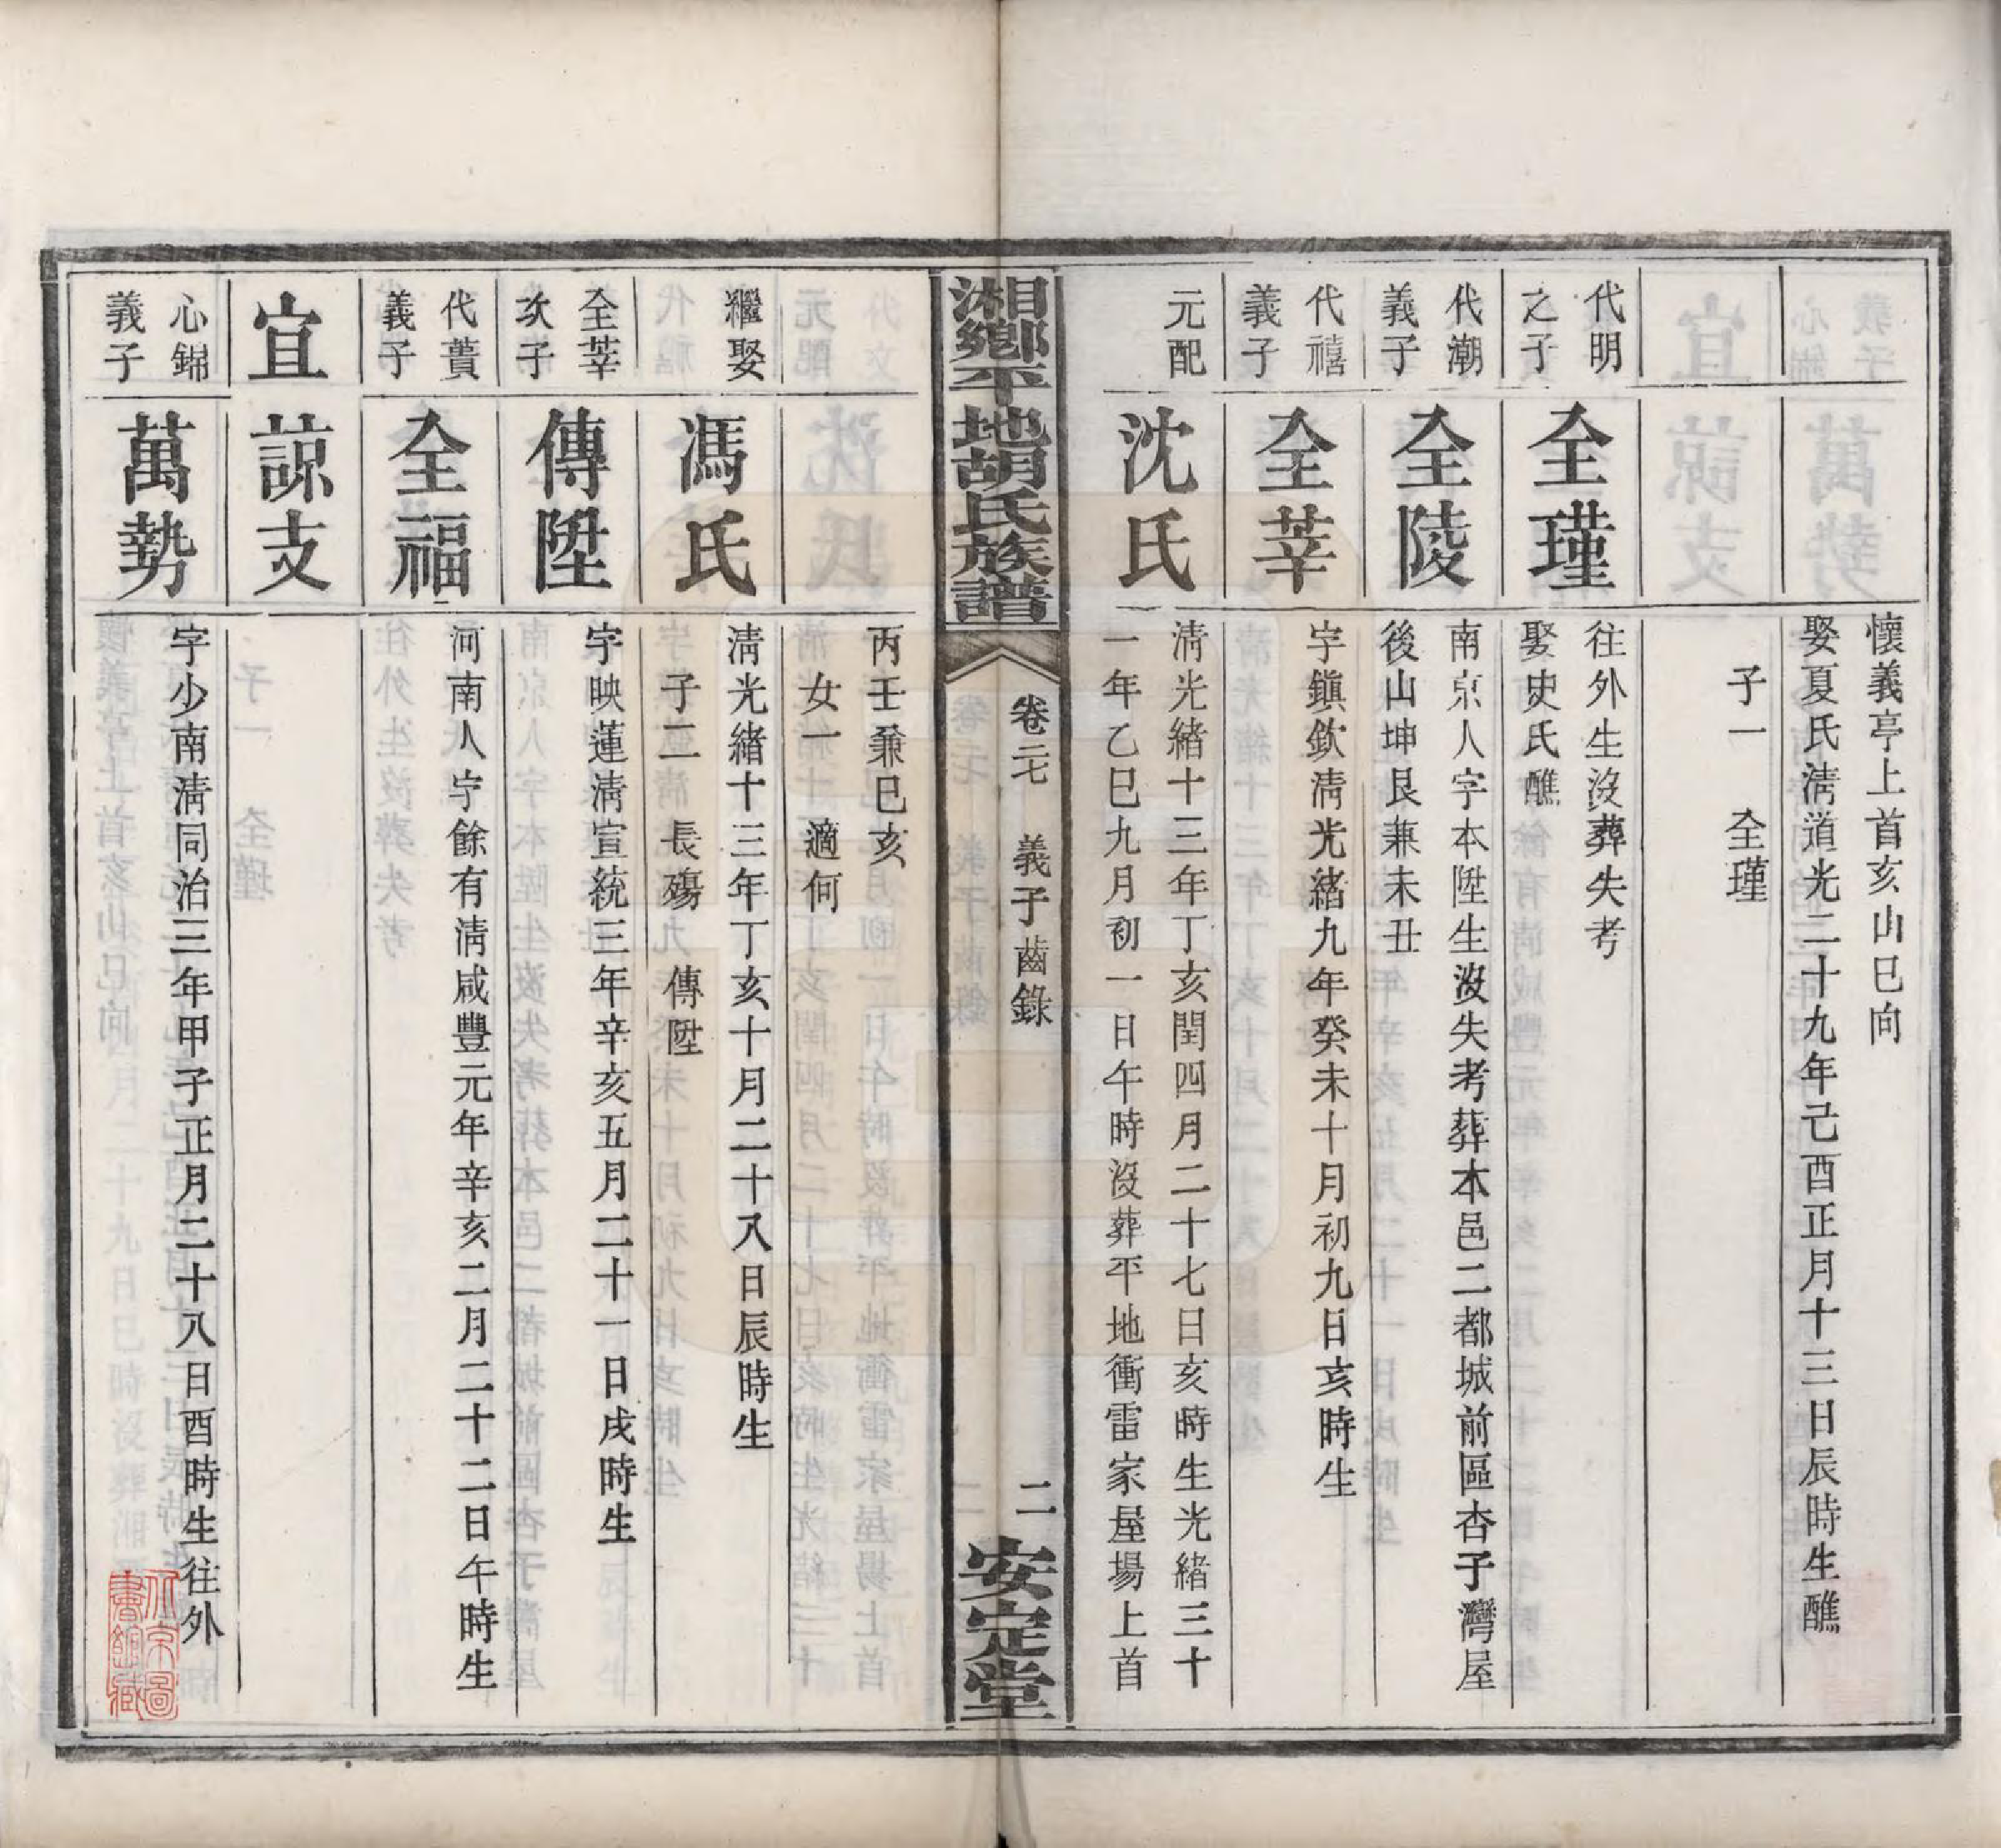 懷義亭上首亥山巳向
娶夏氏淸道光二十九年己酉正月十三日辰時生醮
子一　全瑾
代明
之子
全瑾
往外生沒葬失考
娶史氏醮
代潮
義子
全陵
南京人字本陞生沒失考葬本邑二都城前區杏子灣屋
後山坤艮兼未丑
代禧
義子
全莘
字鎭欽淸光緒九年癸未十月初九日亥時生
元配
沈氏
淸光緒十三年丁亥閏四月二十七日亥時生光緒三十
一年乙巳九月初一日午時沒葬平地衝雷家屋場上首
湘鄉平地胡氏族譜
卷二七　義子齒錄
二
安定堂
丙壬兼巳亥
女一　適何
繼娶
馮氏
淸光緒十三年丁亥十月二十八日辰時生
子二　長殤　傳陞
全莘
次子
傳陞
字映蓮淸宣統三年辛亥五月二十一日戌時生
代蕡
義子
全福
河南人字餘有淸咸豐元年辛亥二月二十二日午時生
宜
諒支
心錦
義子
萬勢
字少南淸同治三年甲子正月二十八日酉時生往外
北京圖
書館藏